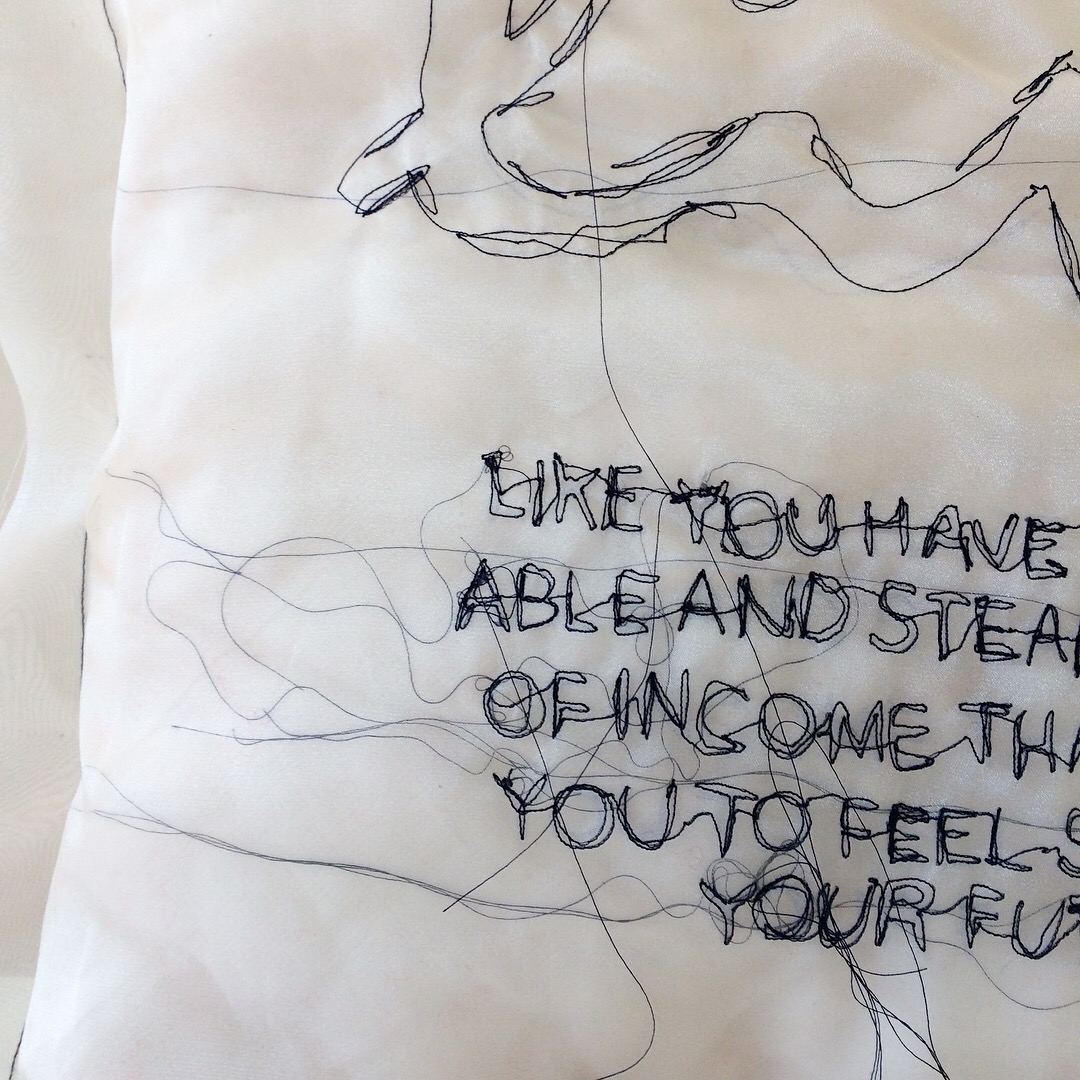 LIKE YOU HAVE
ABLE AND STEA
OF INCOME THA
YOU TO FEEL S
YOUR FUT